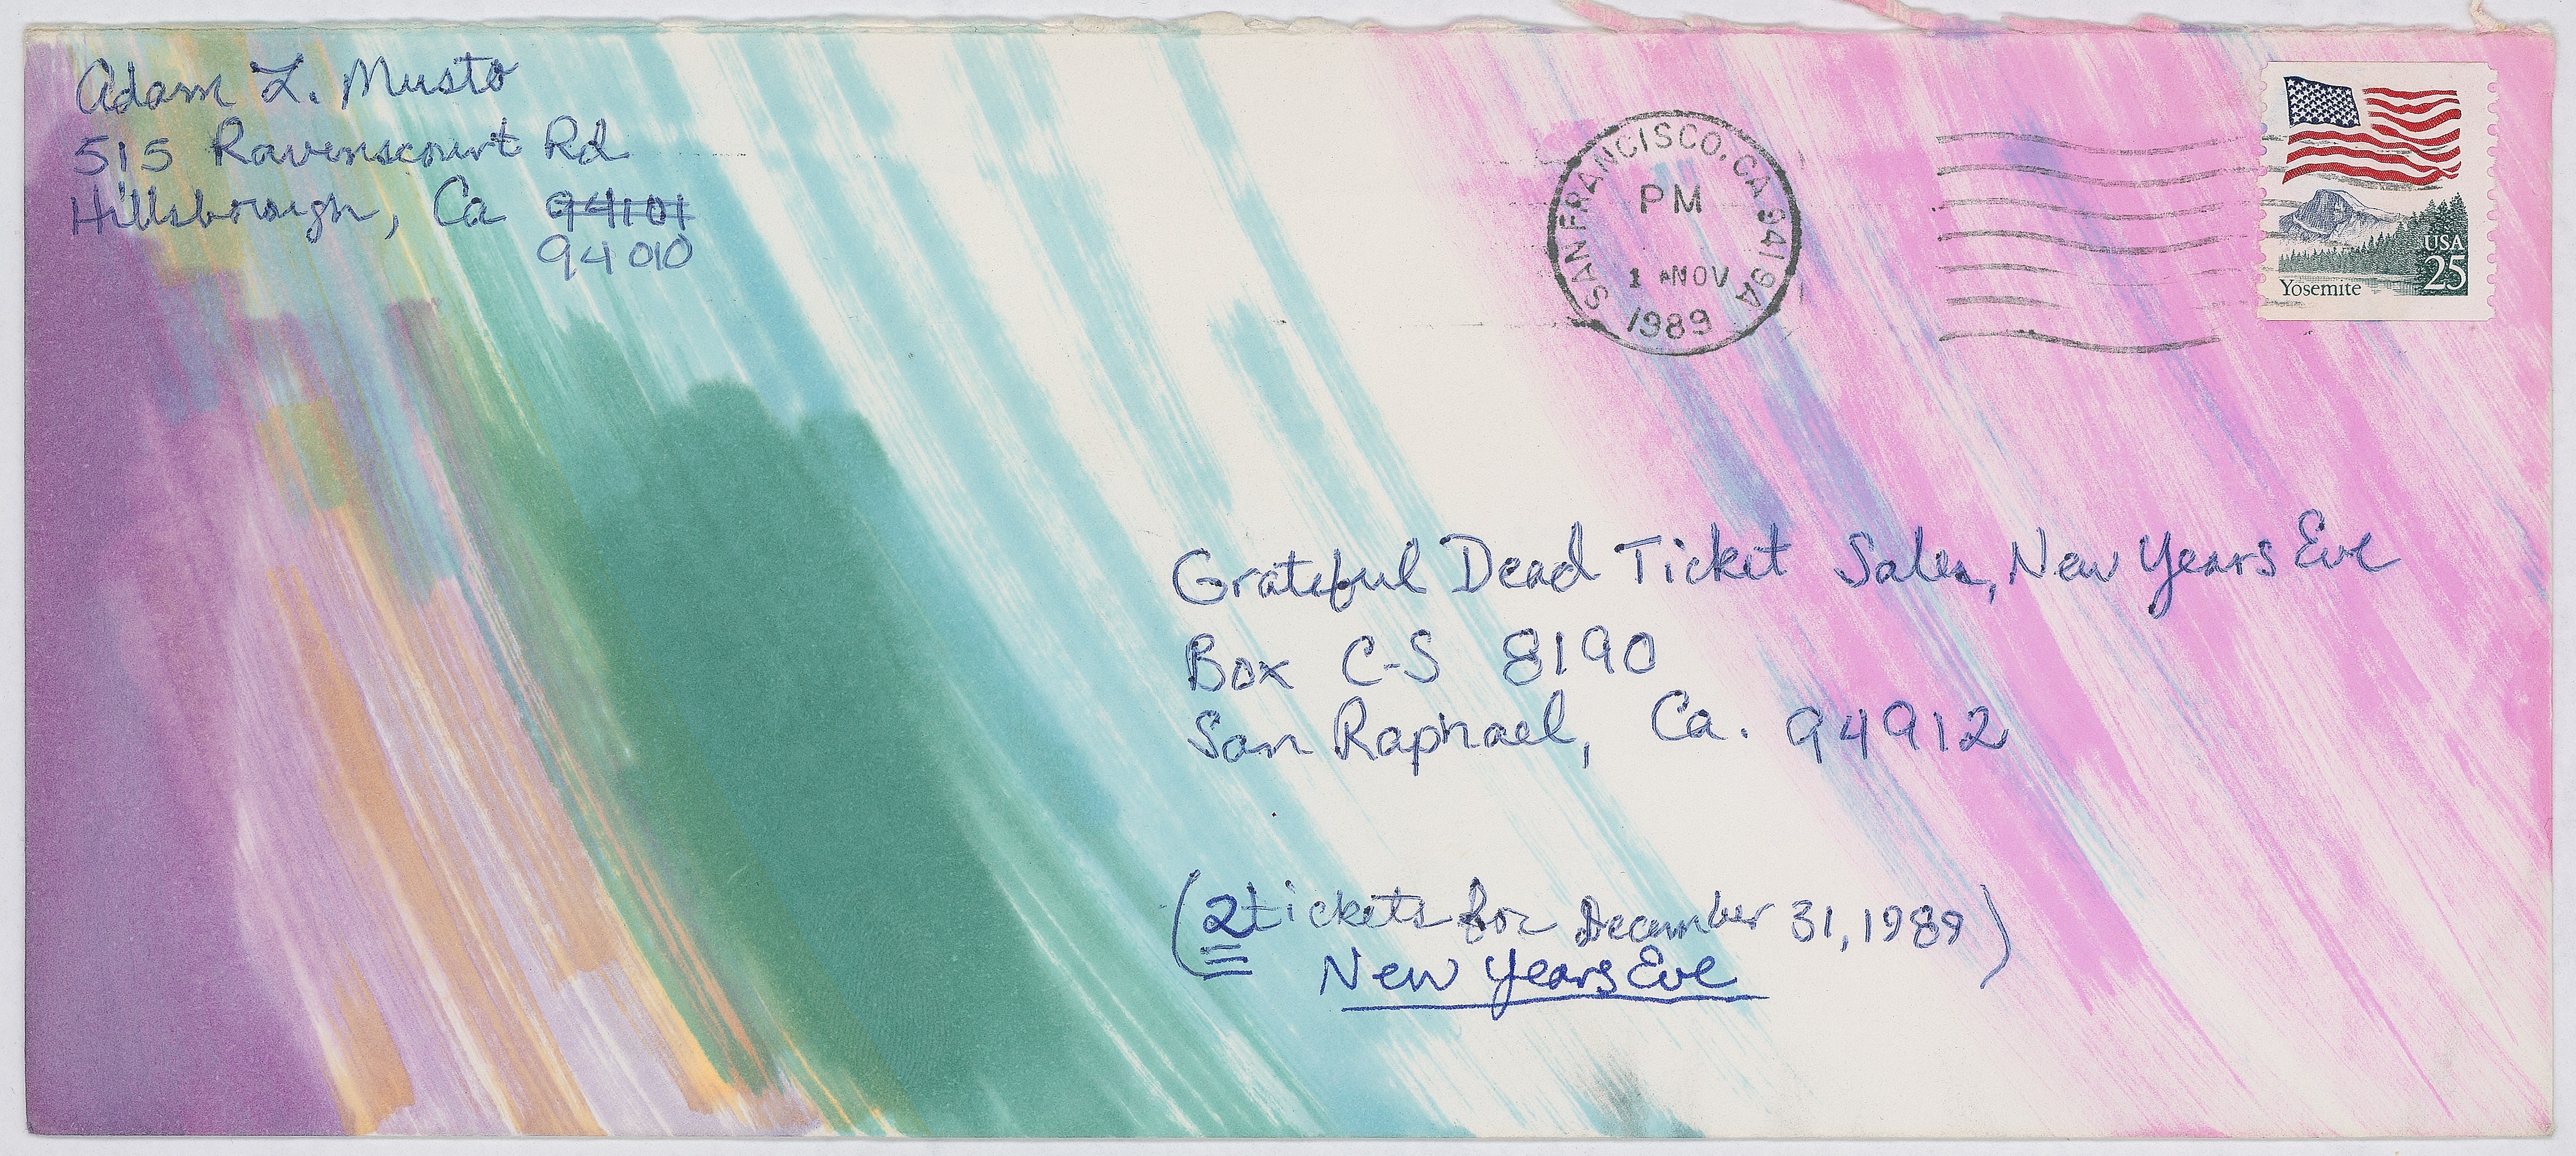 Adam L. Musto
515 Ravenscourt Rd
Hillsborough, Ca 94101
94010
SAN FRANCISCO, CA 941 9A
PM
1 NOV
1989
USA
25
Yosemite
Grateful Dead Ticket Sales, New Years Eve
Box C-S 8190
San Raphael, Ca. 94912
(2 tickets for December 31, 1989)
New Years Eve